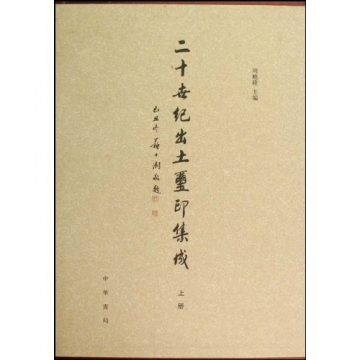 周晓陆 主编
二十世纪出土璽印集成
上册
中华书局